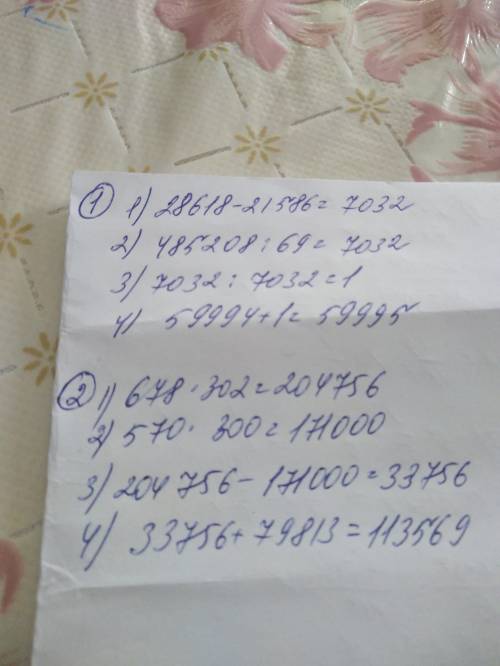 ① 1) 28618-21586= 7032
2) 485208:69= 7032
3) 7032: 7032=1
4) 59994+1= 59995
② 1) 678·302=204756
2) 570· 300=171000
3) 204 756- 171000=33756
4) 33756+ 79813=113569